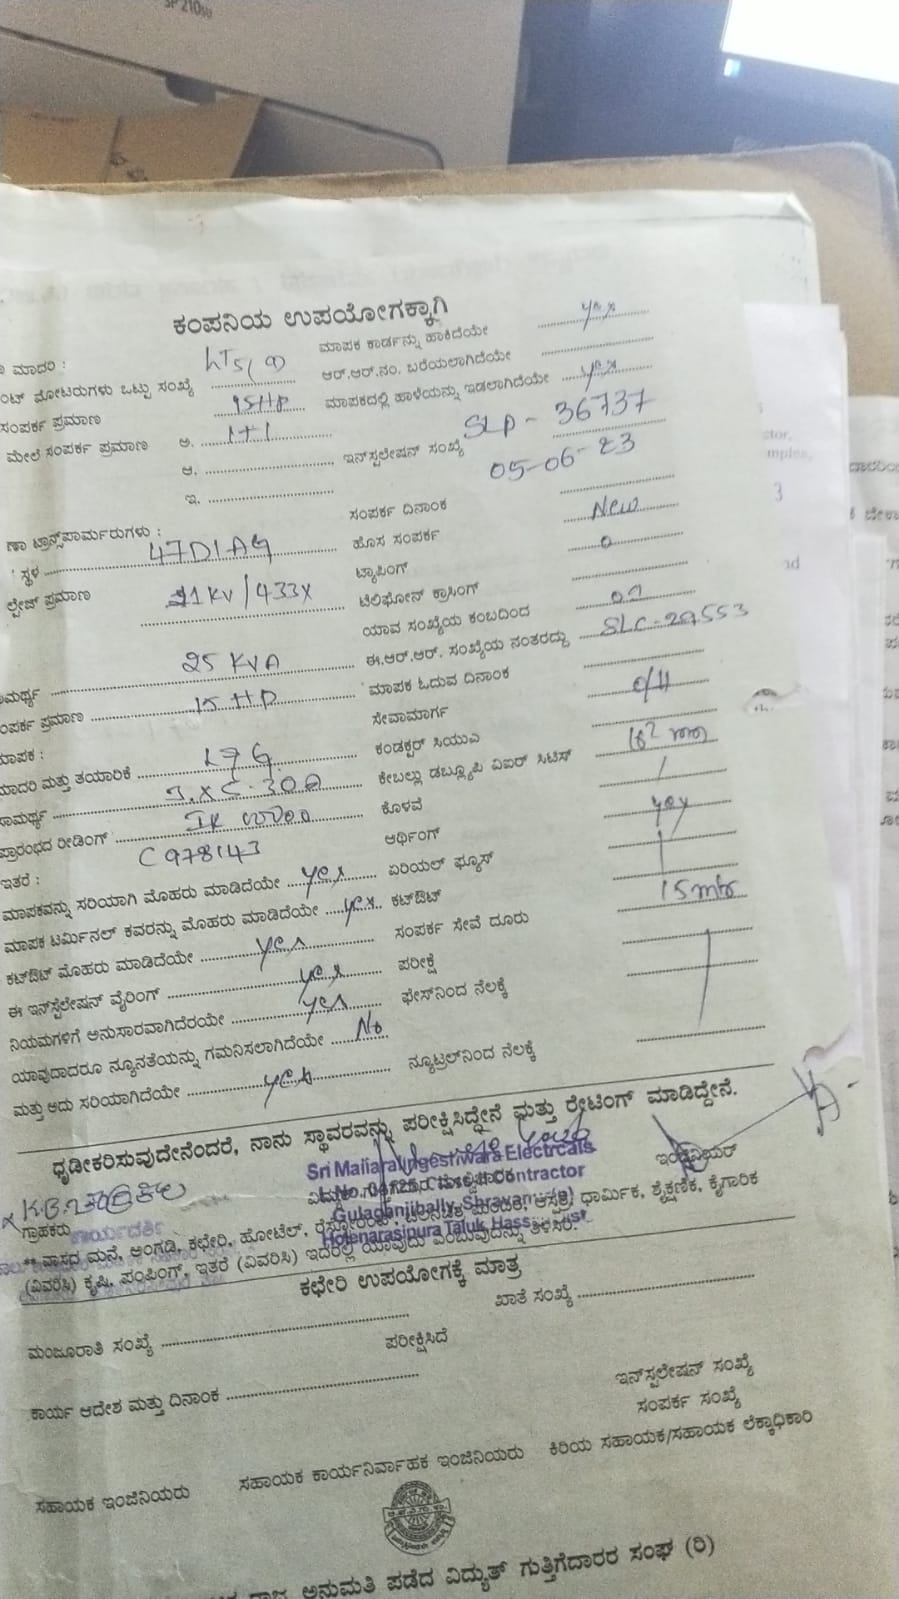 SP 210su
ಕಂಪನಿಯ ಉಪಯೋಗಕ್ಕಾಗಿ
ಮಾದರಿ : LT5(a) ಮಾಪಕ ಕಾರ್ಡನ್ನು ಹಾಕಿದೆಯೇ yes
ಮೋಟರುಗಳು ಒಟ್ಟು ಸಂಖ್ಯೆ ಆರ್.ಆರ್.ನಂ. ಬರೆಯಲಾಗಿದೆಯೇ
ಸಂಪರ್ಕ ಪ್ರಮಾಣ 15HP ಮಾಪಕದಲ್ಲಿ ಹಾಳೆಯನ್ನು ಇಡಲಾಗಿದೆಯೇ yes
ಮೇಲೆ ಸಂಪರ್ಕ ಪ್ರಮಾಣ ಅ. 1+1
ಆ. ಇನ್‌ಸ್ಟಲೇಷನ್ ಸಂಖ್ಯೆ SLP - 36737
ಇ. 05-06-23
ಸಂಪರ್ಕ ದಿನಾಂಕ
ಟ್ರಾನ್ಸ್‌ಪಾರ್ಮರುಗಳು :
ಸ್ಥಳ ಹೊಸ ಸಂಪರ್ಕ New
ಪ್ರಮಾಣ 11KV/433 ಟ್ಯಾಪಿಂಗ್ 0
ಟೆಲಿಫೋನ್ ಕ್ರಾಸಿಂಗ್
ಯಾವ ಸಂಖ್ಯೆಯ ಕಂಬದಿಂದ 02
25 KVA ಈ.ಆರ್.ಆರ್. ಸಂಖ್ಯೆಯ ನಂತರದ್ದು SLC-29553
ಪ್ರಮಾಣ 15 HP ಮಾಪಕ ಓದುವ ದಿನಾಂಕ
ಸೇವಾಮಾರ್ಗ O/H
ಮಾದರಿ ಮತ್ತು ತಯಾರಿಕೆ L&G ಕಂಡಕ್ಟರ್ ಸಿಯುಎ
ಕೇಬಲ್ಲು ಡಬ್ಲ್ಯೂಪಿ ವಿಐರ್ ಸಿಟಿಸ್ 16² mm
ಪ್ರಾರಂಭದ ರೀಡಿಂಗ್ ಕೊಳವೆ
C978143 ಆರ್ಥಿಂಗ್ yes
ಇತರೆ :
ಮಾಪಕವನ್ನು ಸರಿಯಾಗಿ ಮೊಹರು ಮಾಡಿದೆಯೇ yes ಏರಿಯಲ್ ಫ್ಯೂಸ್
ಮಾಪಕ ಟರ್ಮಿನಲ್ ಕವರನ್ನು ಮೊಹರು ಮಾಡಿದೆಯೇ yes ಕಟ್‌ಔಟ್
ಕಟ್‌ಔಟ್ ಮೊಹರು ಮಾಡಿದೆಯೇ yes ಸಂಪರ್ಕ ಸೇವೆ ದೂರು 15mtr
ಈ ಇನ್‌ಸ್ಟಲೇಷನ್ ವೈರಿಂಗ್ yes ಪರೀಕ್ಷೆ
ನಿಯಮಗಳಿಗೆ ಅನುಸಾರವಾಗಿದೆರಯೇ yes ಫೇಸ್‌ನಿಂದ ನೆಲಕ್ಕೆ
ಯಾವುದಾದರೂ ನ್ಯೂನತೆಯನ್ನು ಗಮನಿಸಲಾಗಿದೆಯೇ No
ಮತ್ತು ಅದು ಸರಿಯಾಗಿದೆಯೇ yes ನ್ಯೂಟ್ರಲ್‌ನಿಂದ ನೆಲಕ್ಕೆ
ಧೃಡೀಕರಿಸುವುದೇನೆಂದರೆ, ನಾನು ಸ್ಥಾವರವನ್ನು ಪರೀಕ್ಷಿಸಿದ್ದೇನೆ ಮತ್ತು ರೇಟಿಂಗ್ ಮಾಡಿದ್ದೇನೆ.
Sri Mallaralingeshwara Electrcals
L.No. Class Contractor
Gulaganjihally, Shravan
Holenarasipura Taluk, Hassan
ಇಂಜಿನಿಯರ್
ಗ್ರಾಹಕರು
ಕಾರ್ಯದರ್ಶಿ
** ವಾಸದ ಮನೆ, ಅಂಗಡಿ, ಕಛೇರಿ, ಹೋಟೆಲ್, ಆಸ್ಪತ್ರೆ, ಧಾರ್ಮಿಕ, ಶೈಕ್ಷಣಿಕ, ಕೈಗಾರಿಕ
(ವಿವರಿಸಿ) ಕೃಷಿ, ಪಂಪಿಂಗ್, ಇತರೆ (ವಿವರಿಸಿ) ಇದರಲ್ಲಿ ಯಾವುದು ಎಂಬುವುದನ್ನು ತಿಳಿಸಿರಿ.
ಕಛೇರಿ ಉಪಯೋಗಕ್ಕೆ ಮಾತ್ರ
ಮಂಜೂರಾತಿ ಸಂಖ್ಯೆ ಖಾತೆ ಸಂಖ್ಯೆ
ಪರೀಕ್ಷಿಸಿದೆ
ಕಾರ್ಯ ಆದೇಶ ಮತ್ತು ದಿನಾಂಕ ಇನ್‌ಸ್ಟಲೇಷನ್ ಸಂಖ್ಯೆ
ಸಂಪರ್ಕ ಸಂಖ್ಯೆ
ಸಹಾಯಕ ಇಂಜಿನಿಯರು ಸಹಾಯಕ ಕಾರ್ಯನಿರ್ವಾಹಕ ಇಂಜಿನಿಯರು ಕಿರಿಯ ಸಹಾಯಕ/ಸಹಾಯಕ ಲೆಕ್ಕಾಧಿಕಾರಿ
ಅನುಮತಿ ಪಡೆದ ವಿದ್ಯುತ್ ಗುತ್ತಿಗೆದಾರರ ಸಂಘ (ರಿ)